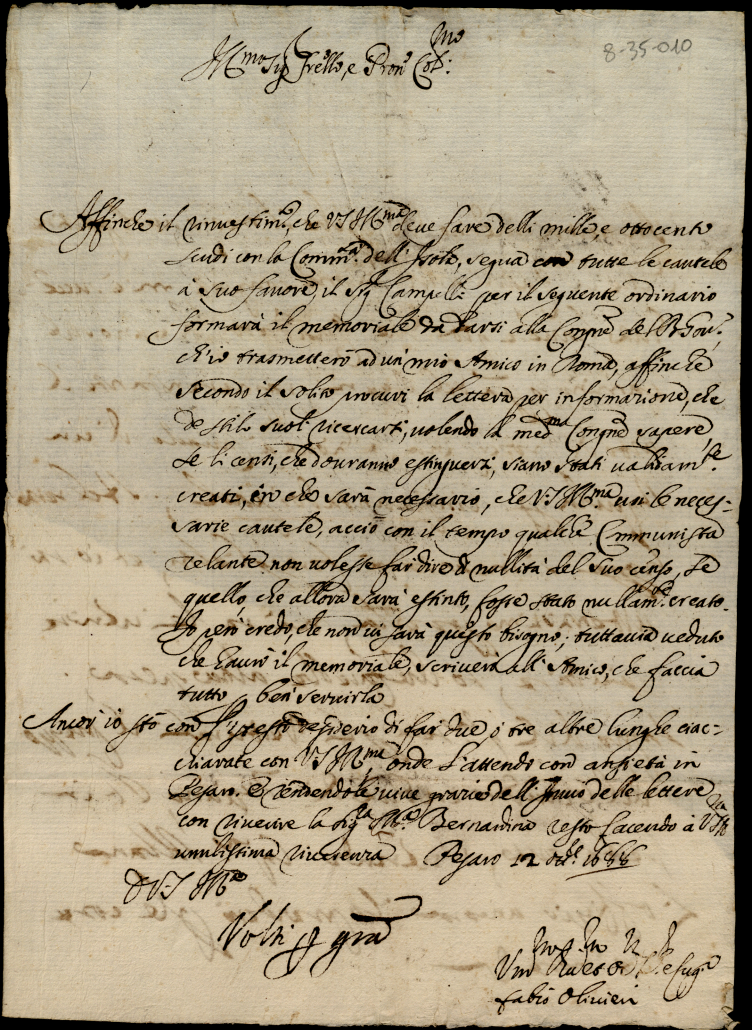 8-35-010
Ill.mo Sig.r Frello, e Pron Col.mo
Affinche il rinvestim.to, che V.S. Ill.ma deve fare delli mille, e ottocento
scudi con la Comm.tà dell'Isole, segua con tutte le cautele
à suo favore, il Sig.r Campelli per il seguente ordinario
formarà il memoriale da darsi alla Congne del B Gov.o,
ch'io trasmetterò ad un mio Amico in Roma, affinche
secondo il solito procuri la lettera per informazione, che
de stilo suol ricercarsi, volendo la med.ma Congne sapere,
se li censi, che dovranno estinguersi, siano stati validam.te
creati, in che sarà necessario, che V.S. Ill.ma usi le neces-
sarie cautele, acciò con il tempo qualche Communista
zelante non volesse far dire di nullità del suo censo, se
quello, che allora sarà estinto, fosse stato nullam.te creato.
Io però credo, che non vi sarà questo bisogno; tuttavia veduto
che haurò il memoriale, scriverò all'Amico, che faccia
tutto ben servirla
Ancor'io stò con l'istesso desiderio di far due, ò tre altre lunghe ciac-
chiarate con V.S. Ill.ma, onde l'attendo con ansietà in
Pesaro. E rendendole vive grazie dell'Invio delle lettere,
con riverire la Sig.ra Bernardina resto facendo à V.S. Ill.ma
umilissima riverenza Pesaro 12 1688
D V.S. Ill.ma
Volti p gra
Fabio Olivieri